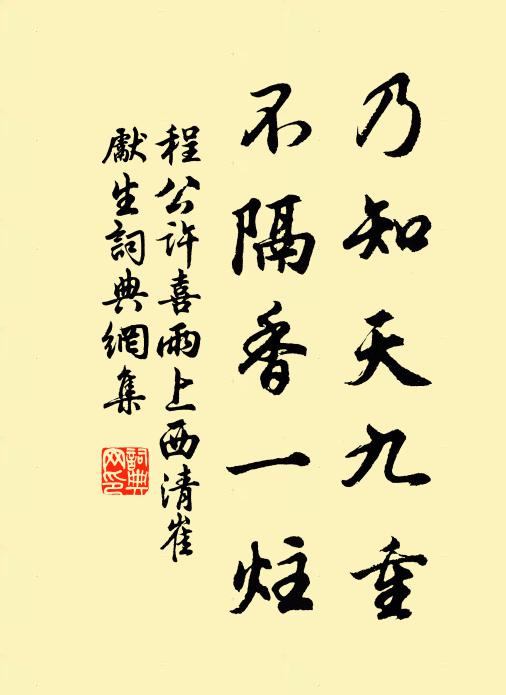 乃知天九重
不隔香一炷
程公许喜雨上西清崔
獻生詞典網集
詞典
网印